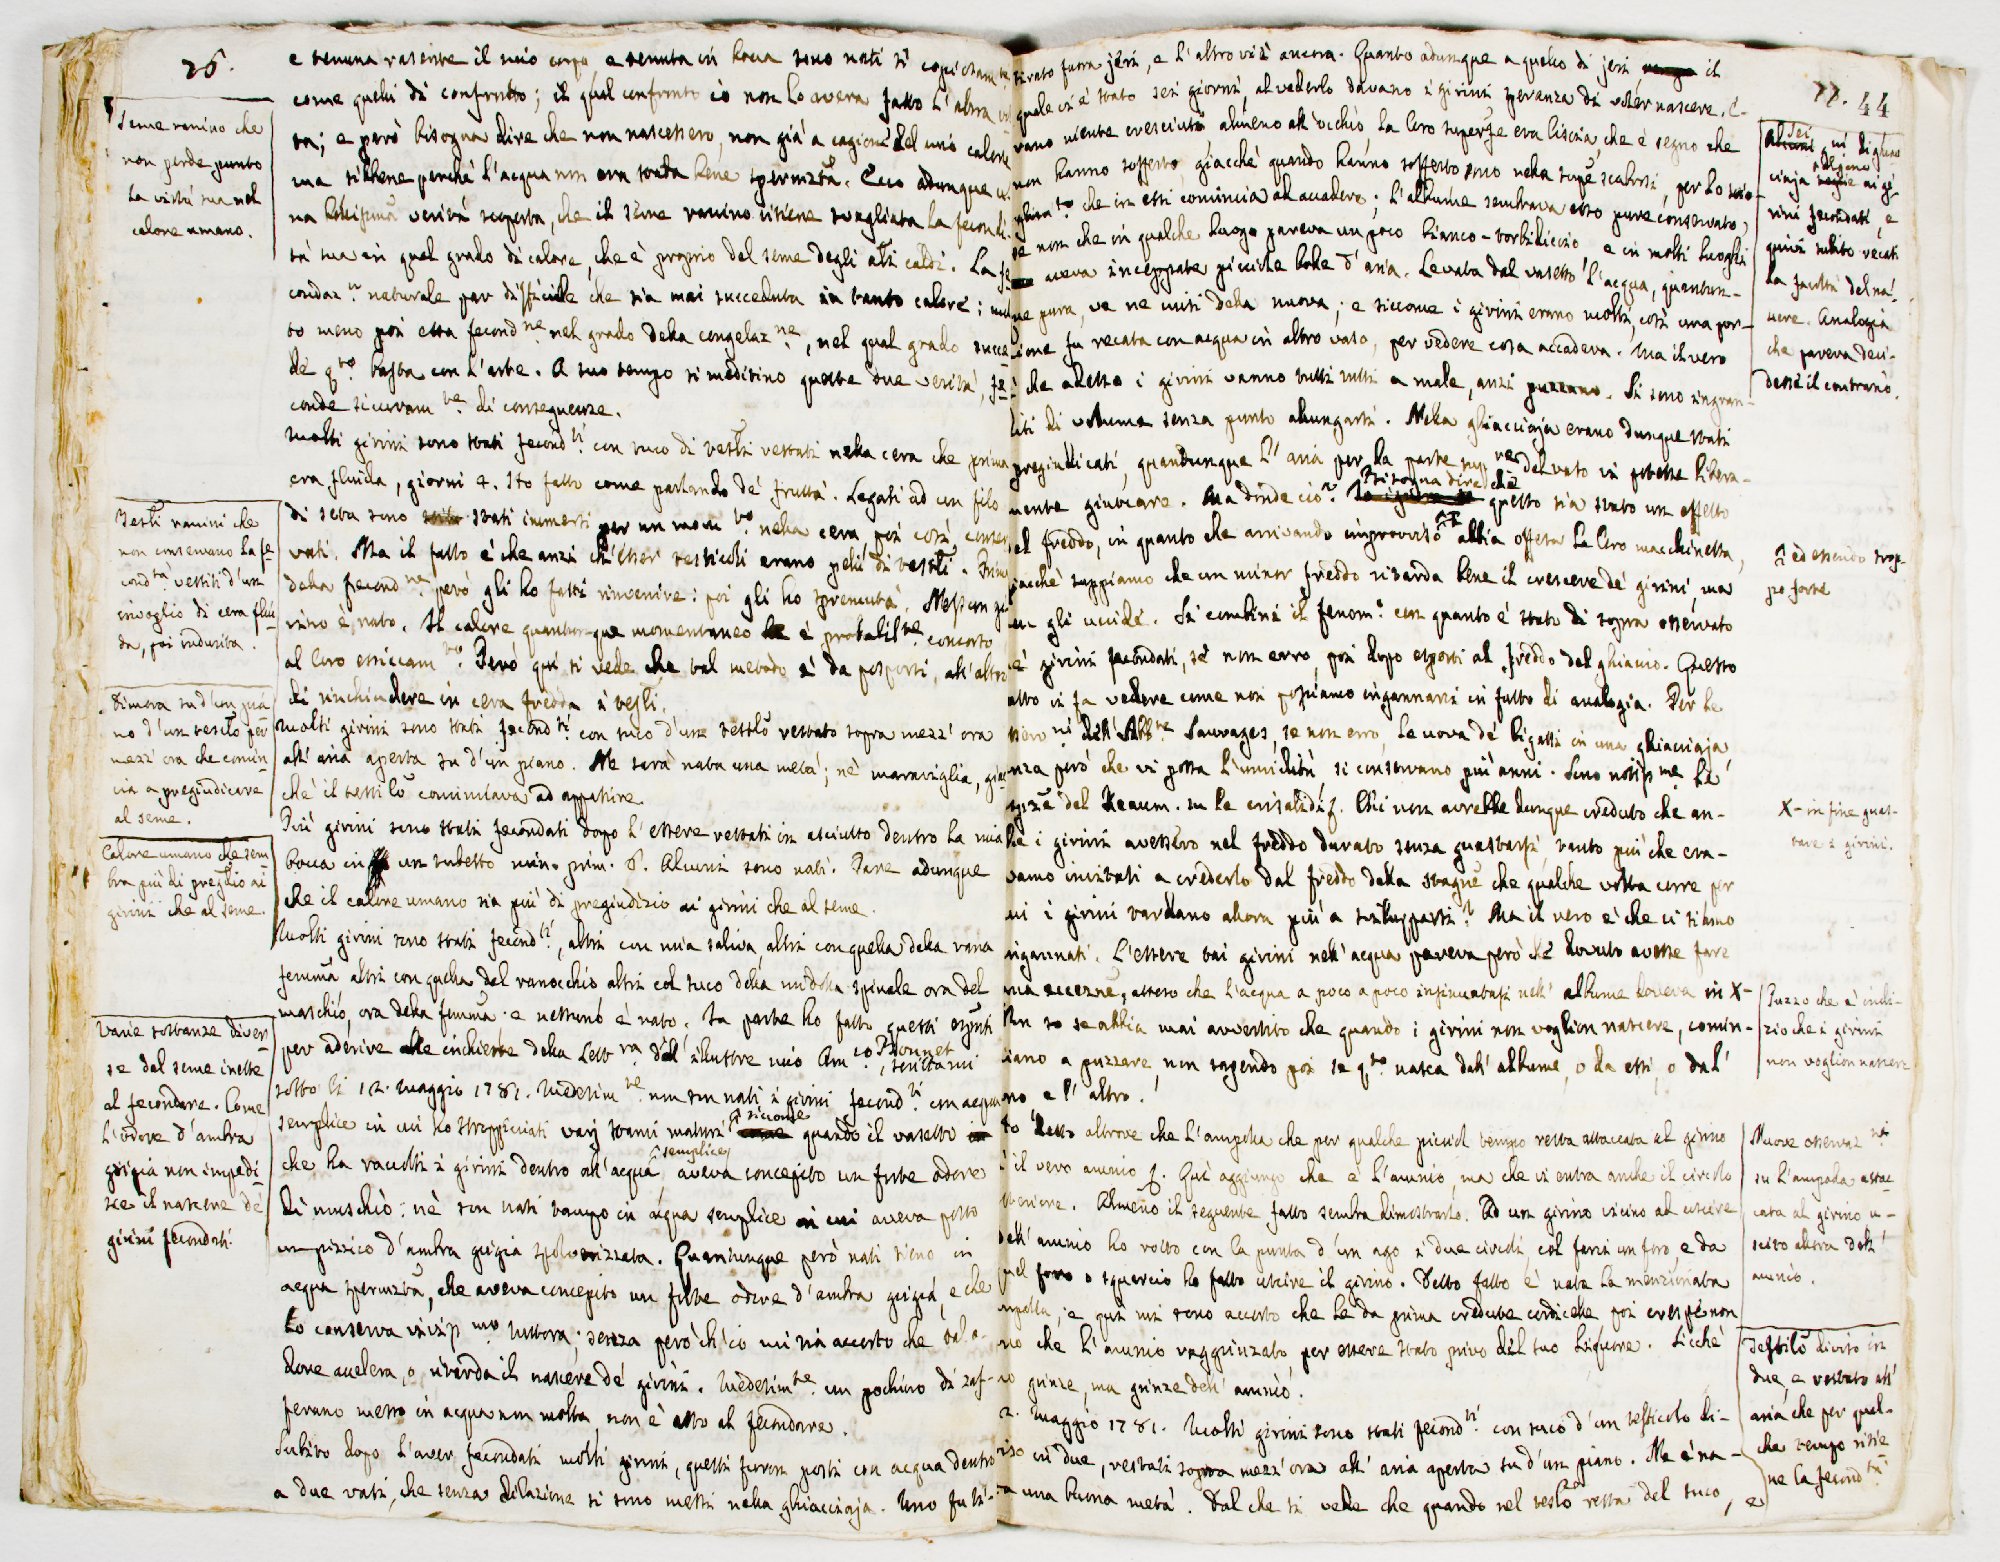 26.
e tenuta rasente il mio corpo e tenuta in bocca sono nati sì copiosam.te
come quelli di confronto; il qual confronto io non lo aveva fatto l'altra
ta; e però bisogna dire che non nascessero, non già a cagione del mio calore
ma sibbene perchè l'acqua non era stata bene spermata. Ecco adunque
na verità scoperta, che il seme ranino ritiene svegliata la fecondi-
tà sua in quel grado di calore, che è proprio del seme degli altri caldi. La fe-
condaz.ne naturale par difficile che sia mai succeduta in tanto calore;
to meno poi essa fecond.ne nel grado della congelaz.ne, nel qual grado succe-
de q.to basta con l'arte. A suo tempo si meditino queste due verità, fe-
conde sicuram.te di conseguenze.
Molti girini sono stati fecond.ti con suco di testli restati nella cera che prima
era fluida, giorni 4. Ho fatto come parlando de' frutta. Legati ad un filo
di seta sono stati immersi per un mom.to nella cera, poi così conser-
vati. Ma il fatto è che anzi ch'esser testicoli erano pelli di testli. Prima
della fecond.ne però gli ho fatti rinvenire: poi gli ho spremuti. Nessun gi-
rino è nato. Il calore quantunque momentaneo è probabil.te concorso
al loro essiccam.to. Però qui si vede che tal metodo è da posporsi, all'altro
di rinchiudere in cera fredda i testli.
Molti girini sono stati fecond.ti con suco d'un testlo restato sopra mezz'ora
all'aria aperta su d'un piano. Ne sarà nata una metà; nè maraviglia, giac-
chè il testilo cominciava ad appassire.
Più girini sono stati fecondati dopo l'essere restati in asciutto dentro la mia
bocca in un tubetto min. prim. 8. Alcuni sono nati. Pare adunque
che il calore umano sia più di pregiudizio ai girini che al seme.
Molti girini sono stati fecond.ti, altri con mia saliva, altri con quella della rana
femma altri con quella del ranocchio altri col suco della midolla spinale ora del
maschio, ora della femma: e nessuno è nato. In parte ho fatto questi esperti
per aderire alle inchieste della Lett.ra dell'illustre mio Am.co Bonnet, scrittami
sotto li 12. Maggio 1781. Medesim.te non son nati i girini fecond.ti con acqua
semplice in cui ho stroppicciati varj stami maturi siccome quando il vasetto
che ha racolti i girini dentro all'acqua semplice, aveva concepito un forte odore
di muschio: nè son nati tampo in acqua semplice in cui aveva posto
un pizzico d'ambra grigia spolverizzata. Quantunque però nati sieno in
acqua spermata, che aveva concepito un forte odore d'ambra grigia, e che
lo conserva vivip.mo tuttora; senza però ch'io mi sia accorto che tal o-
dore accelera, o ritarda il nascere de' girini. Medesim.te un pochino di zaf-
ferano messo in acqua non molta non è atto al fecondare.
Subito dopo l'aver fecondati molti girini, questi furon posti con acqua dentro
a due vasi, che senza dilazione si sono messi nella ghiacciaja. Uno fu ti-
Seme ranino che
non perde punto
la virtù sua nel
calore umano.
Testli ranini che
non conservano la fe-
cond.tà vestiti d'un
invoglio di cera flui-
da, poi indurita.
Dimora su d'un pia-
no d'un testlo per
mezz'ora che comin-
cia a pregiudicare
al seme.
Calore umano che sem-
bra più di pregdio ai
girini che al seme.
Varie sostanze diver-
se dal seme inette
al fecondare. Come
l'odore d'ambra
grigia non impedi-
sce il nascere de'
girini fecondati.
27. 44
rato fuora jeri, e l'altro vi è ancora. Quanto adunque a quello di jeri il
quale vi è stato sei giorni, al vederlo davano i girini speranza di voler nascere. E-
rano niente cresciuti almeno all'occhio la loro superfze era liscia, che è segno che
non hanno sofferto, giacchè quando hanno sofferto sono nella supfe scabrosi, per lo
che in essi comincia ad accadere; l'albume sembrava esso pure conservato,
se non che in qualche luogo pareva un poco bianco-torbidiccio e in molti luoghi
aveva inceppate picciole bolle d'aria. Levata dal vasetto l'acqua, quantun-
que pura, ve ne misi della nuova; e siccome i girini erano molti, così una por-
zione fu recata con acqua in altro vaso, per vedere cosa accadeva. Ma il vero
è che adesso i girini vanno tutti tutti a male, anzi puzzano. Si sono ingran-
diti di volume senza punto allungarsi. Nella ghiacciaja erano dunque stati
pregiudicati, quantunque l'aria per la parte sup.re del vaso vi potesse libera-
mente giuocare. Ma donde ciò? Bisogna dire che questo sia stato un effetto
del freddo, in quanto che arrivando improvviso abbia offesa la loro macchinetta,
giacchè sappiamo che un minor freddo ritarda bene il crescere de' girini, ma
non gli uccide. Si combini il fenom.o con quanto è stato di sopra osservato
de' girini fecondati, se non erro, poi dopo esposti al freddo del ghiaccio. Questo
fatto ci fa vedere come noi possiamo ingannarsi in fatto di analogia. Per le
osserv.ni dell'Ab.te Sauvages, se non erro, le uova de' bigatti in una ghiacciaja,
senza però che vi possa l'umidità si conservano più anni. Sono notip.me le
del Reaum. su le crisalidi. Chi non avrebbe dunque creduto che an-
che i girini avessero nel freddo durato senza guastarsi, tanto più che era-
vamo invitati a crederlo dal freddo della stagne che qualche volta corre per
cui i girini tardano allora più a svilupparsi? Ma il vero è che ci siamo
ingannati. L'essere tai girini nell'acqua pareva però che dovuto avesse fare
una eccezne, atteso che l'acqua a poco a poco insinuatasi nell'albume doveva in X-
Non so se abbia mai avvertito che quando i girini non voglion nascere, comin-
ciano a puzzare, non sapendo poi se q.to nasca dall'albume, o da essi, o dall'
uno e l'altro.
Ho detto altrove che l'ampolla che per qualche picciol tempo resta attaccata al girino
è il vero amnio. Qui aggiungo che è l'amnio, ma che vi entra anche il circolo
Almeno il seguente fatto sembra dimostrarlo. Ad un girino vicino ad uscire
dall'amnio ho rotto con la punta d'un ago i due circoli, col farvi un foro, e da
quel foro o squarcio ho fatto uscire il girino. Detto fatto è nata la menzionata
ampolla; e qui mi sono accorto che le da prima credute cordicelle poi crespe non
sono che l'amnio raggrinzato, per essere stato privo del suo liquore. Sicchè
sono grinze, ma grinze dell'amnio.
2. Maggio 1781. Molti girini sono stati fecond.ti con suco d'un testicolo di-
viso in due, restati sopra mezz'ora all'aria aperta su d'un piano. Ne è na-
ta una buona metà. Dal che si vede che quando nel testlo resta del suco, e
Al sei giu di ghiac-
ciaja
rini fecondati, e
quivi subito recati
la facoltà del na-
scere. Analogia
che pareva deci-
desse il contrario.
ed essendo trop-
po forte
X- in fine guas-
tare i girini.
Puzzo che è indi-
zio che i girini
non voglion nascere
Nuove osservaz.ni
su l'ampolla attac-
cata al girino u-
scito allora dall'
amnio.
Testilo diviso in
due, e restato all'
aria che per qual-
che tempo ritie-
ne la fecond.tà